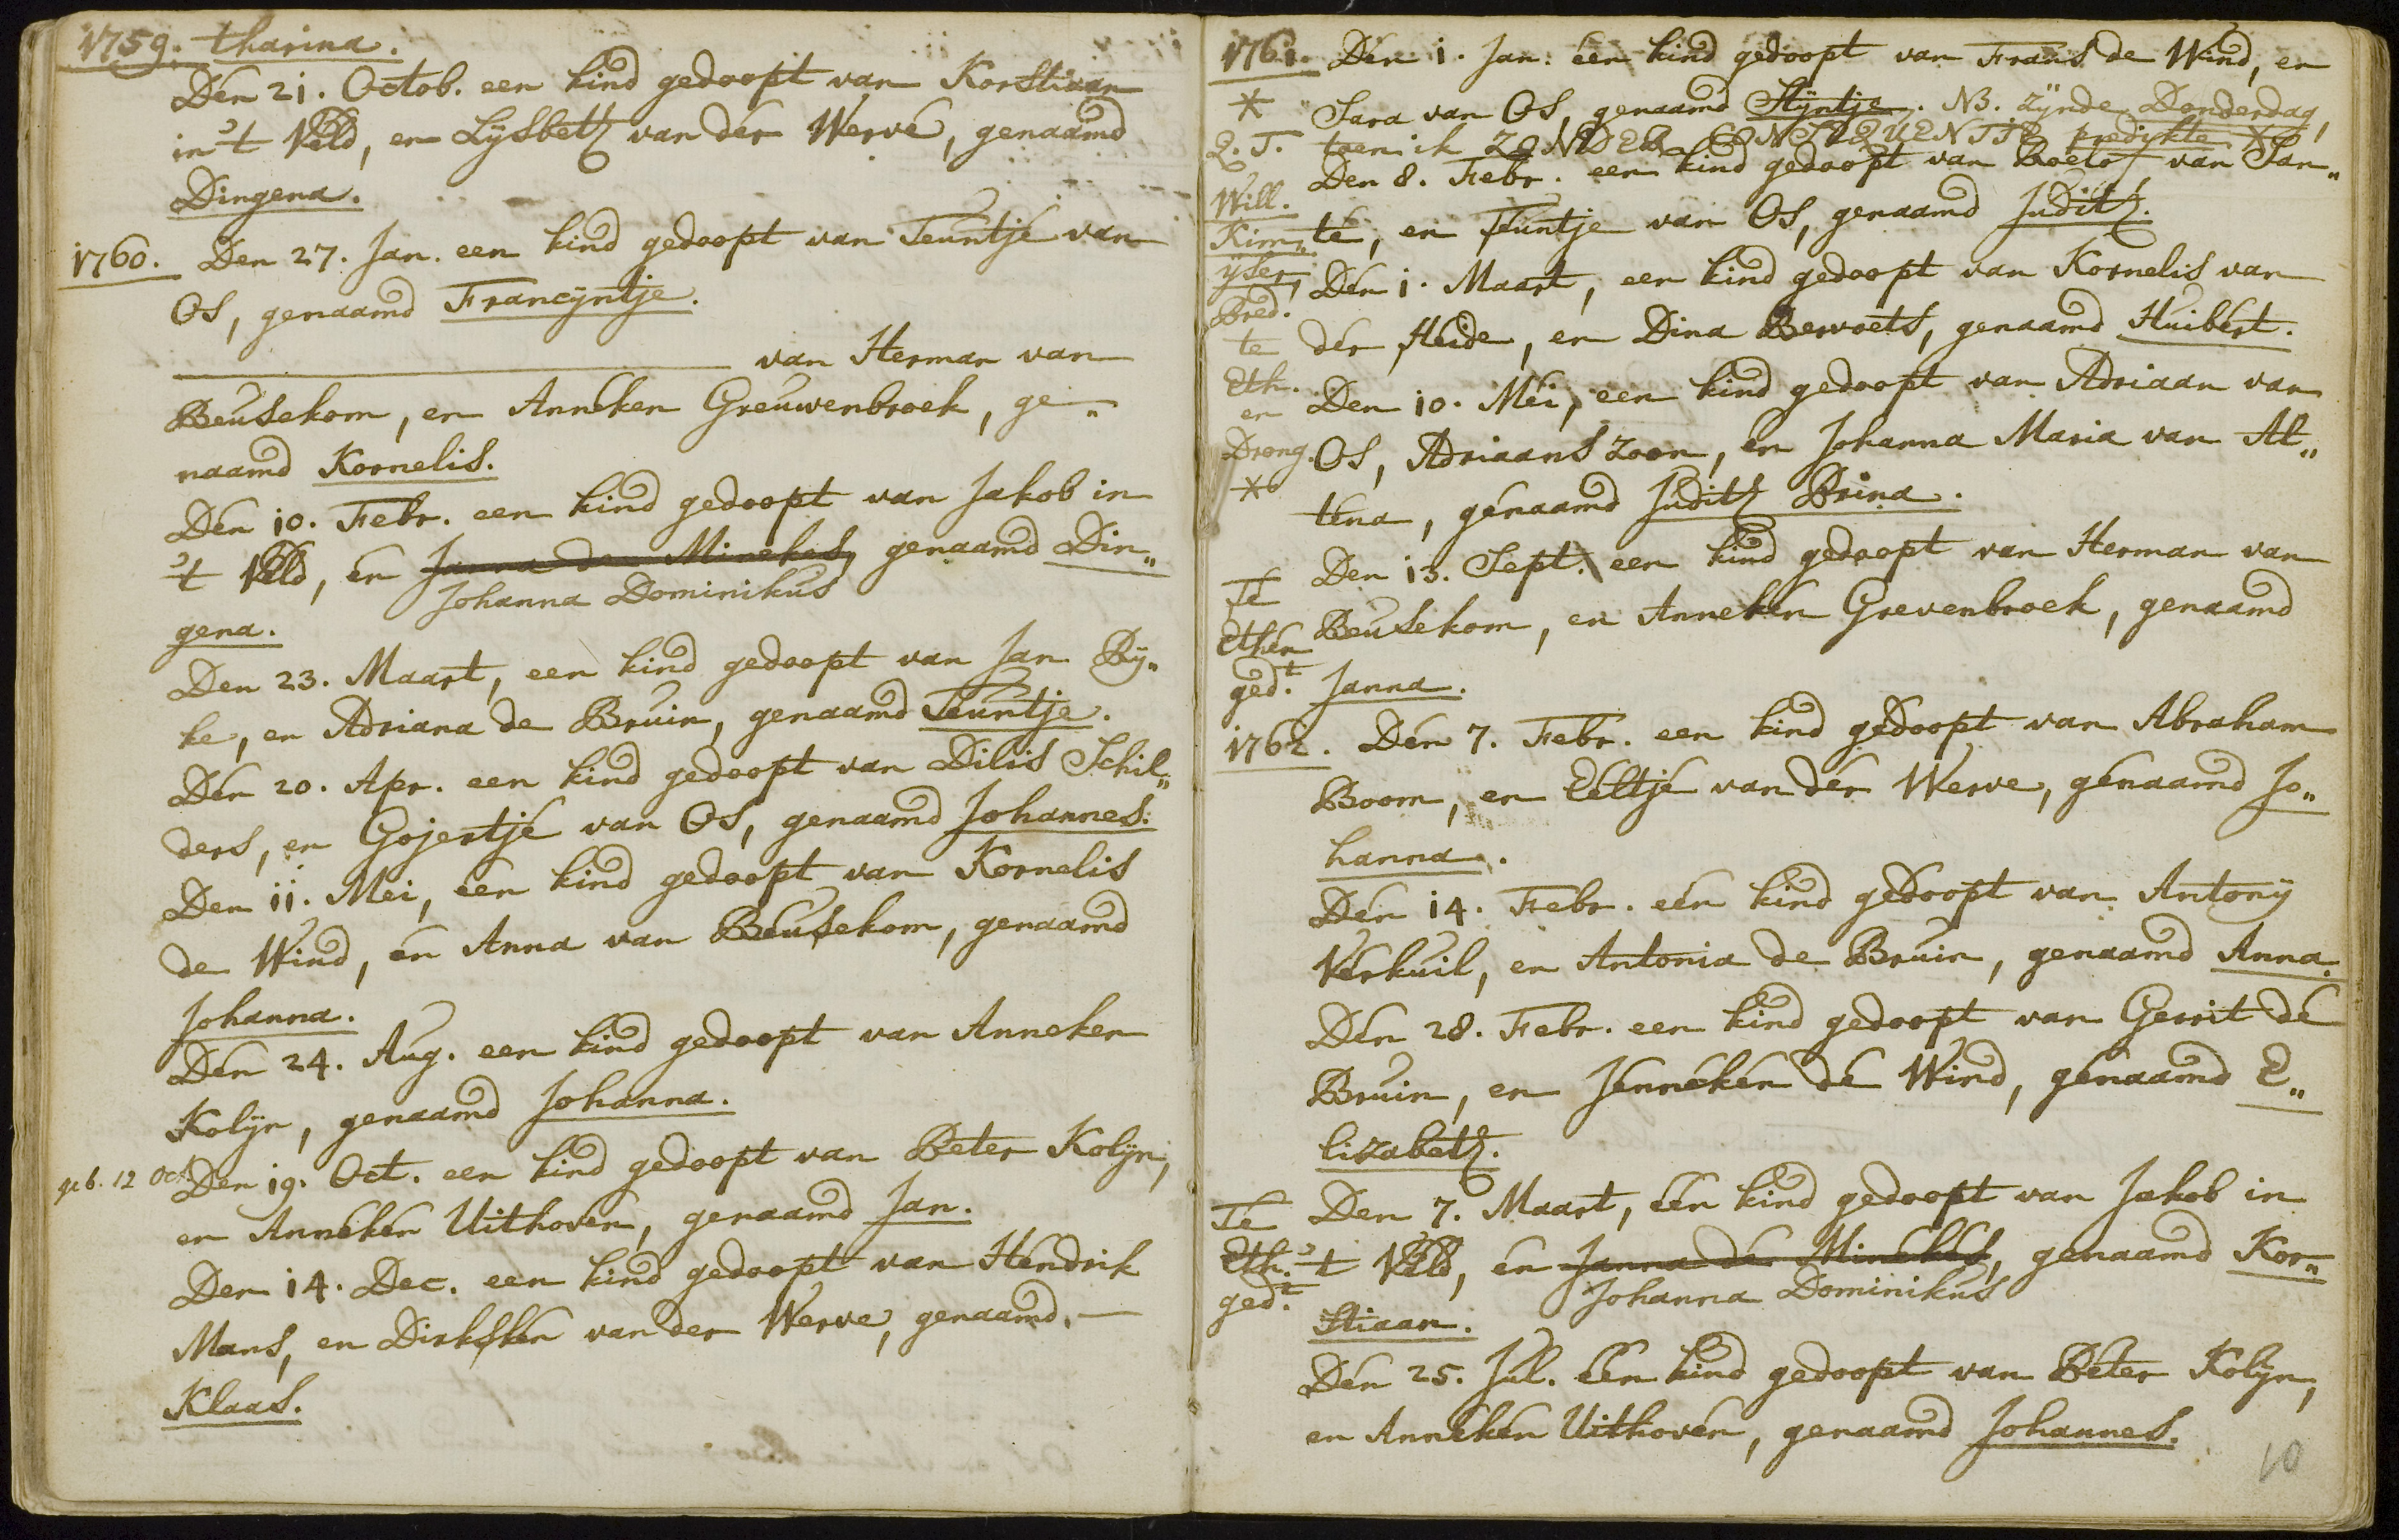 1759. tharina.
Den 21. Octob. een kind gedoopt van Korstiaan
in 't Veld, en Lysbeth van der Werve, genaamd
Dingena.
1760. Den 27. Jan. een kind gedoopt van Teuntje van
Os, genaamd Francyntje.
van Herman van
Beusekom, en Anneken Greuwenbroek, ge„
naamd Kornelis.
Den 10. Febr. een kind gedoopt van Jakob in
't Veld, en Janna der Minekes, genaamd Din„
Johanna Dominikus
gena.
Den 23. Maart, een kind gedoopt van Jan Ry„
ke, en Adriana de Bruin, genaamd Teuntje.
Den 20. Apr. een kind gedoopt van Dilis Schil„
ders, en Gojertje van Os, genaamd Johannes.
Den 11. Mei, een kind gedoopt van Kornelis
de Wind, en Anna van Beusekom, genaamd
Johanna.
Den 24. Aug. een kind gedoopt van Anneken
Kolyn, genaamd Johanna.
geb. 12 Oct. Den 19. Oct. een kind gedoopt van Peter Kolyn,
en Anneken Uithoven, genaamd Jan.
Den 14. Dec. een kind gedoopt van Hendrik
Mans, en Dirksken van der Werve, genaamd.
Klaas.
1761. Den 1. Jan. een kind gedoopt van Frans de Wind, en
* Sara van Os, genaamd Styntje. NB. zynde Donderdag,
Q. T. toen ik ZONDER CONSEQUENTIE predikte *
Will. Den 8. Febr. een kind gedoopt van Roelof van San„
Kim„ te, en Teuntje van Os, genaamd Judith.
yser, Den 1. Maart, een kind gedoopt van Kornelis van
Pred.
te der Heide, en Dina Bervoets, genaamd Huibert.
Eth.
en Den 10. Mei, een kind gedoopt van Adriaan van
Drong. Os, Adriaans Zoon, en Johanna Maria van Al„
* tena, genaamd Judith Prina.
Te Den 13. Sept. een kind gedoopt van Herman van
Ethen Beusekom, en Anneken Grevenbroek, genaamd
ged.t Janna.
1762. Den 7. Febr. een kind gedoopt van Abraham
Boom, en Eeltje van der Werve, genaamd Jo„
hanna.
Den 14. Febr. een kind gedoopt van Antony
Verkuil, en Antonia de Bruin, genaamd Anna.
Den 28. Febr. een kind gedoopt van Gerrit de
Bruin, en Jenneken de Wind, genaamd E„
lizabeth.
Te Den 7. Maart, een kind gedoopt van Jakob in
Eth. 't Veld, en Janna der Minekes, genaamd Kor„
ged.t Johanna Dominikus
stiaan.
Den 25. Jul. een kind gedoopt van Peter Kolyn,
en Anneken Uithoven, genaamd Johannes.
10